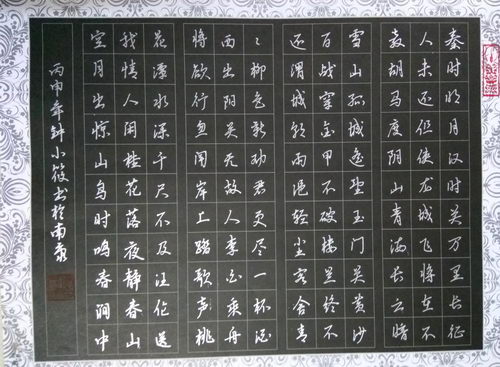 秦时明月汉时关万里长征
人未还但使龙城飞将在不
教胡马度阴山青海长云暗
雪山孤城遥望玉门关黄沙
百战穿金甲不破楼兰终不
还渭城朝雨浥轻尘客舍青
々柳色新劝君更尽一杯酒
西出阳关无故人李白乘舟
将欲行忽闻岸上踏歌声桃
花潭水深千尺不及汪伦送
我情人闲桂花落夜静春山
空月出惊山鸟时鸣春涧中
丙申年钟小筱书於南